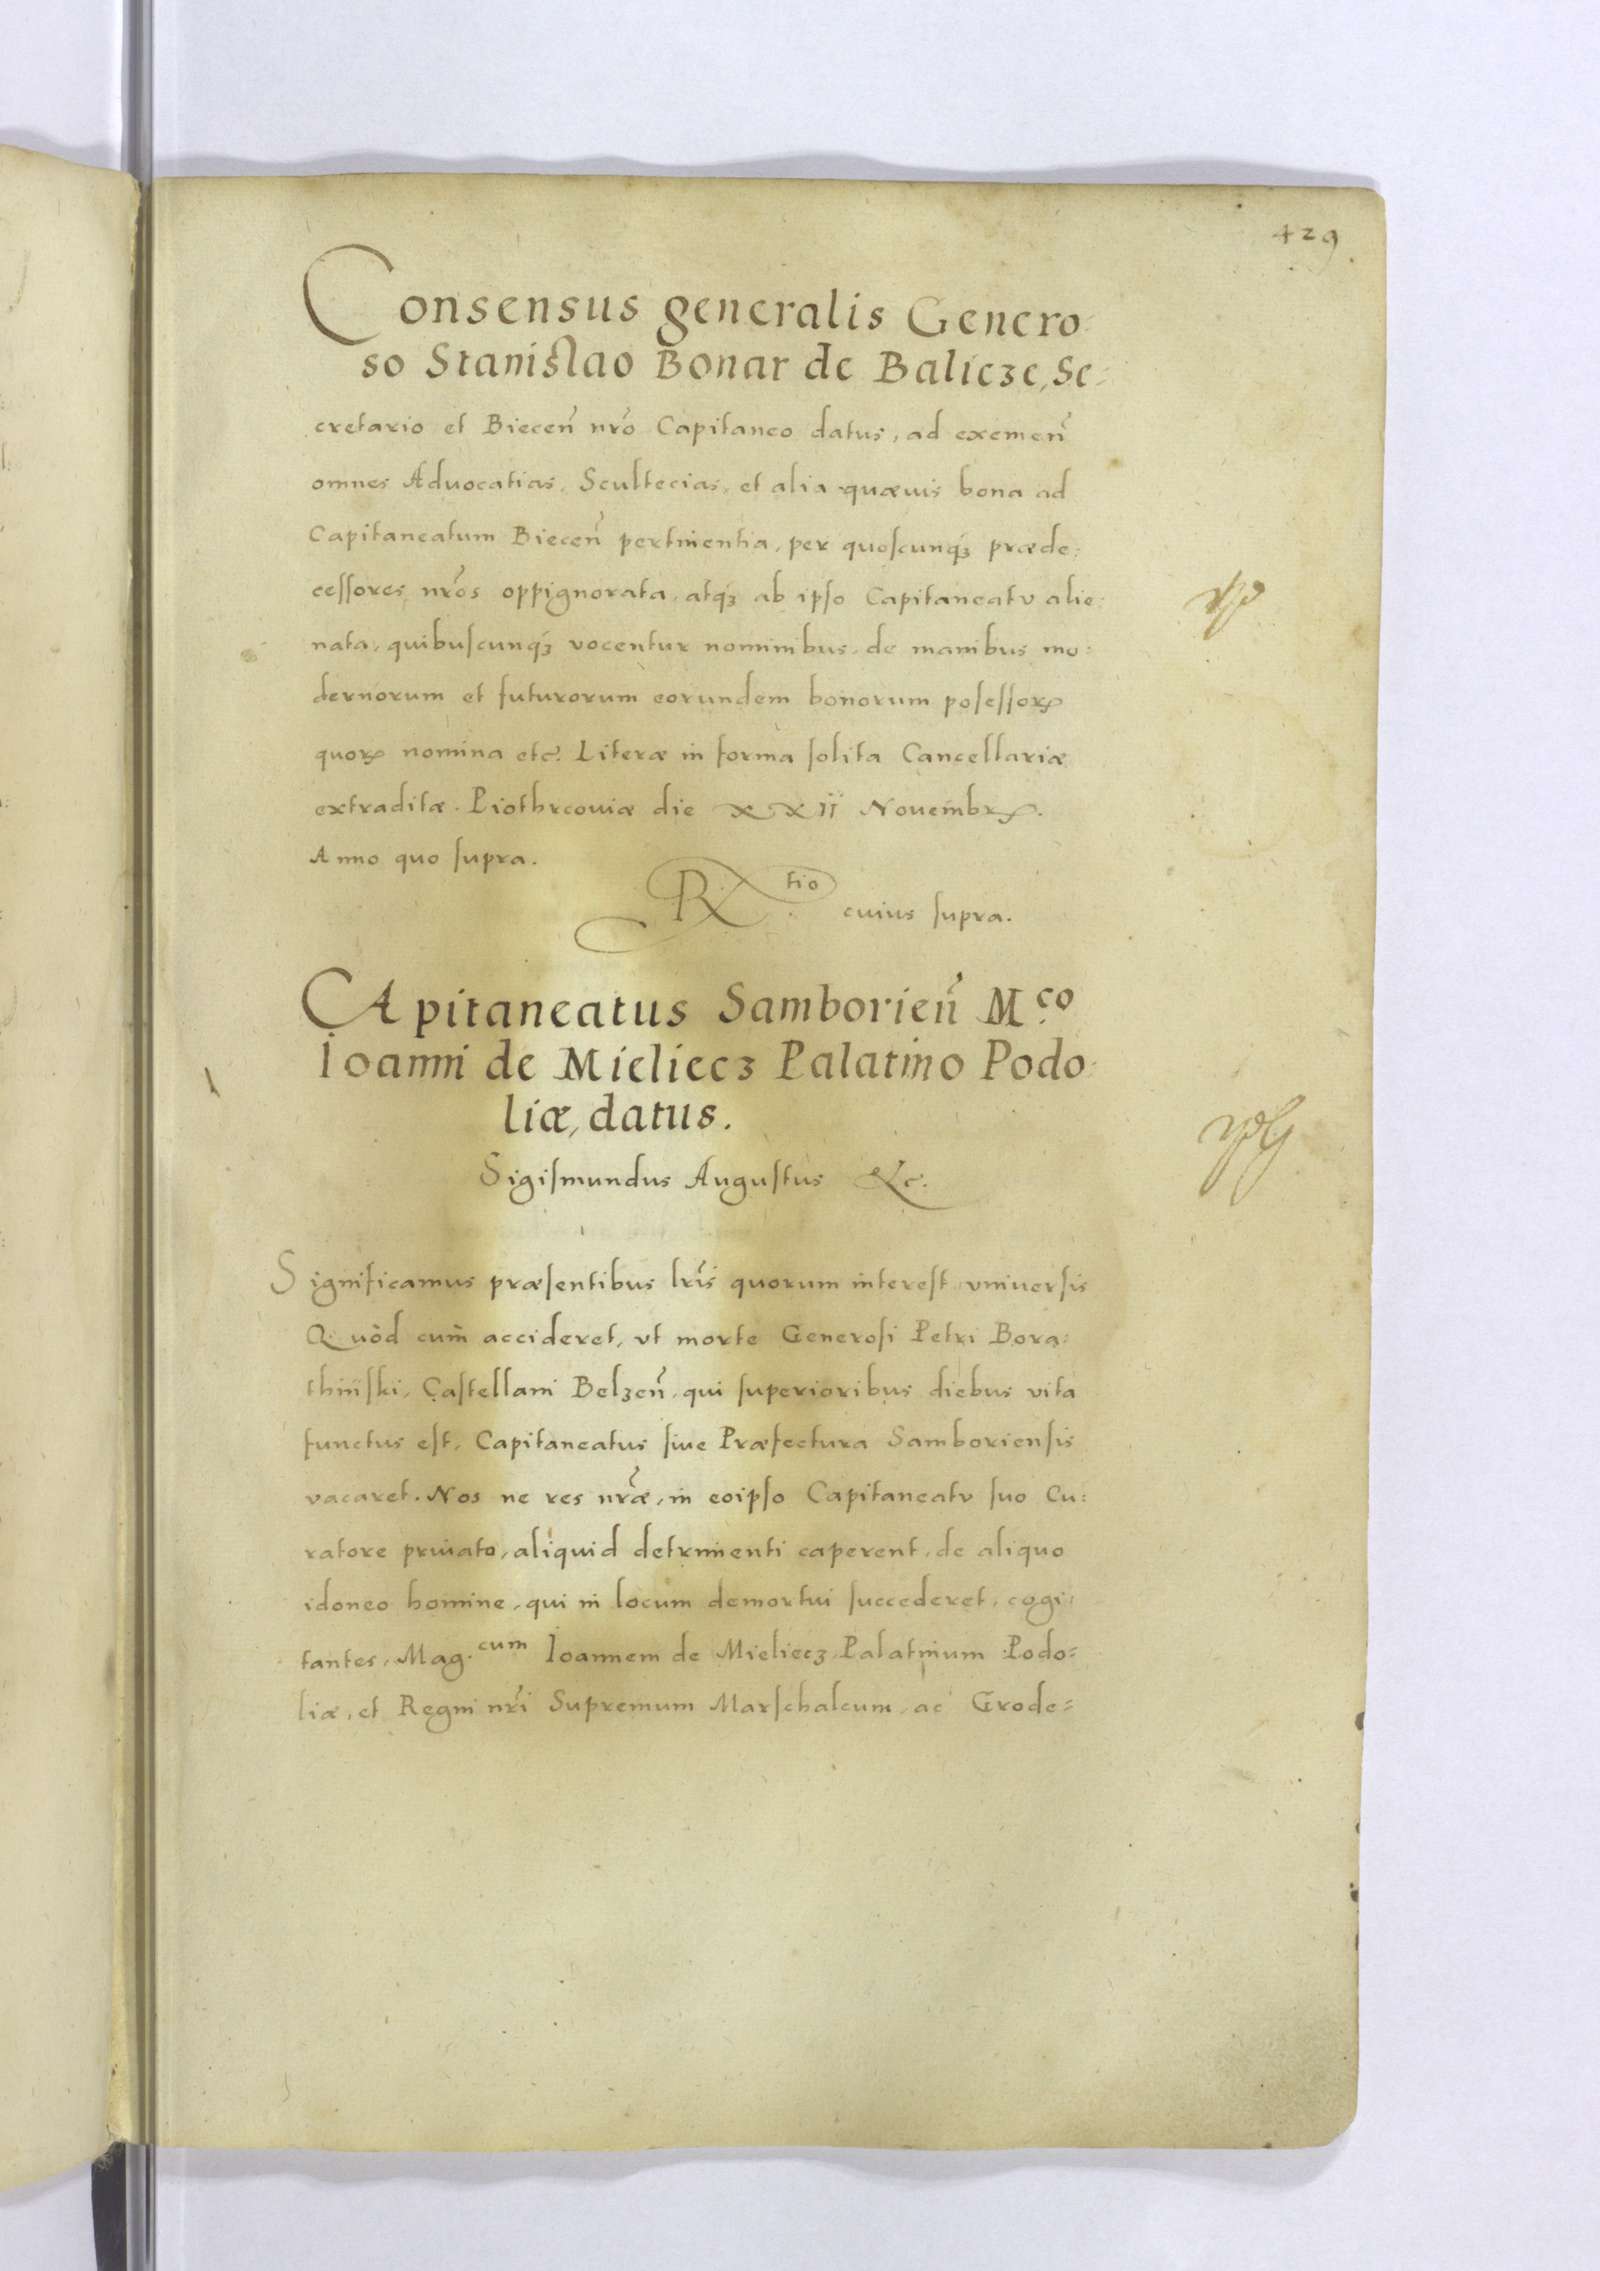 429
Consensus generalis Genero:
so Stanislao Bonar de Balicze, Se:
cretario et Biecen̄ nr̄o Capitaneo datus, ad exemen̄
omnes Aduocatias, Scultecias, et alia quæuis bona ad
Capitaneatum Biecen̄ pertinentia, per quoscunqꝫ præde:
cessores nr̄os oppignorata, atqꝫ ab ipso Capitaneatu alie:
nata, quibuscunqꝫ vocentur nominibus, de manibus mo:
dernorum et futurorum eorundem bonorum posessorꝝ
quorꝝ nomina etc. Literæ in forma solita Cancellariæ
extraditæ. Piothrcouiæ die XXII Nouembrꝭ.
Anno quo supra.
R tio cuius supra.
CApitaneatus Samborien̄ M.co
Ioanni de Mieliecz Palatino Podo:
liæ, datus.
Sigismundus Augustus &c.
Significamus præsentibus lr̄is quorum interest vniuersis
Quòd cum accideret, vt morte Generosi Petri Bora:
thinski, Castellani Belzen̄, qui superioribus diebus vita
functus est, Capitaneatus siue Præfectura Samboriensis
vacaret. Nos ne res nr̄æ, in eoipso Capitaneatu suo Cu:
ratore priuato, aliquid detrimenti caperent, de aliquo
idoneo homine, qui in locum demortui succederet, cogi:
tantes, Mag.cum Ioannem de Mieliecz Palatinum Podo=
liæ, et Regni nr̄i Supremum Marschalcum, ac Grode=